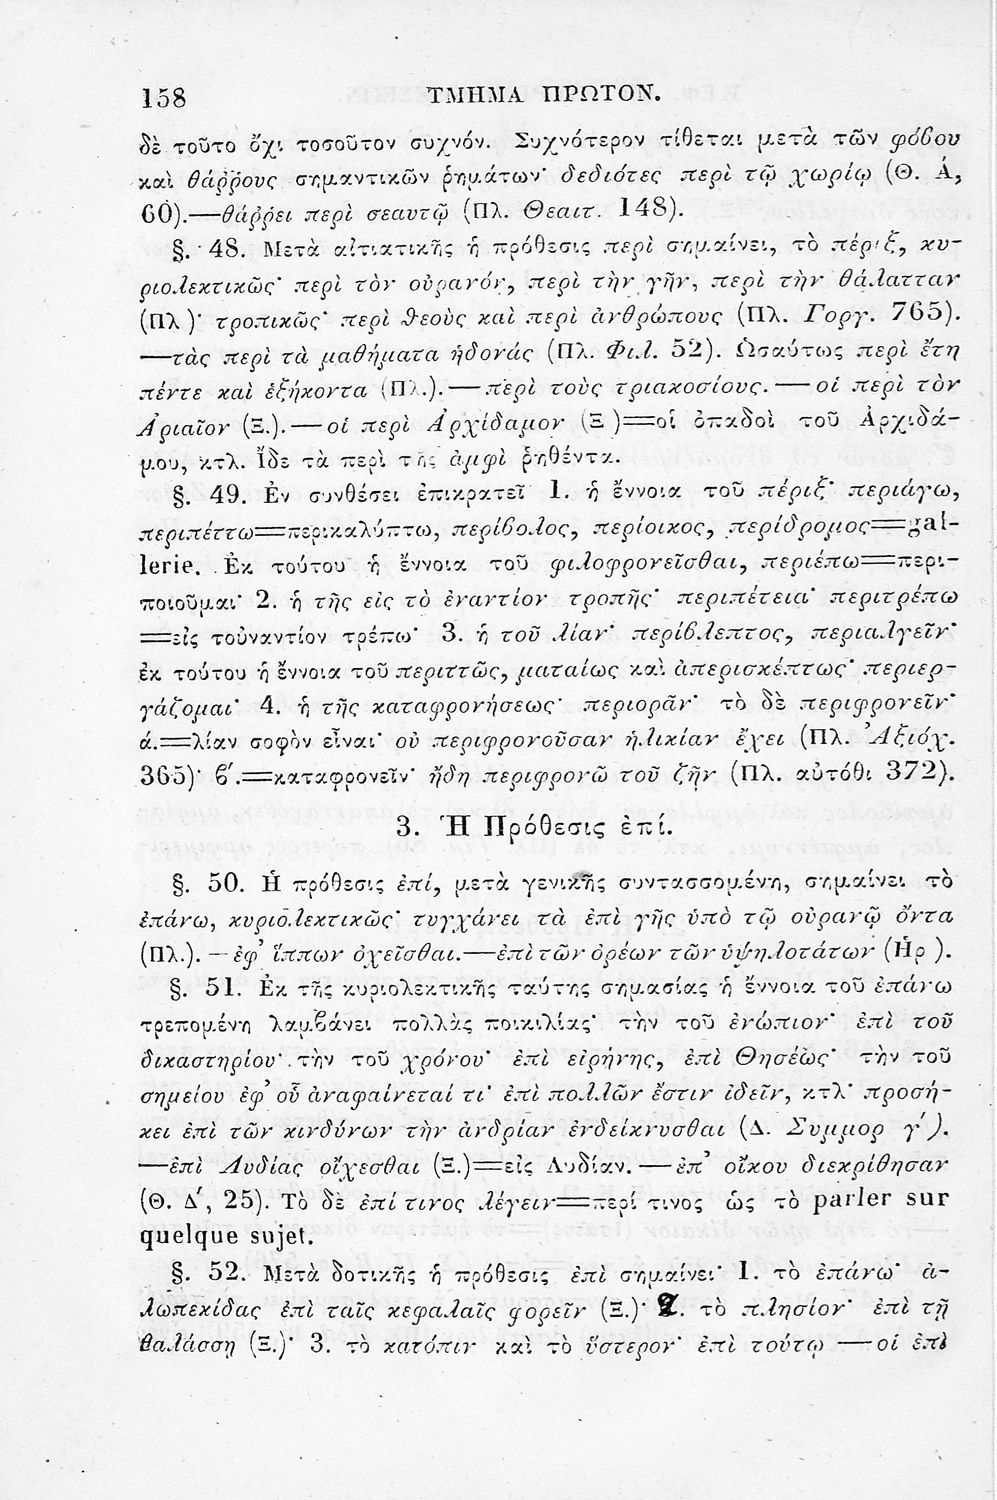 158 ΤΜΗΜΑ ΠΡΩΤΟΝ.
δὲ τοῦτο ὄχι τοσοῦτον συχνόν. Συχνότερον τίθεται μετὰ τῶν φόβου
καὶ θάῤῥους σημαντικῶν ῥημάτων· δεδιότες περὶ τῷ χωρίῳ (Θ. Ἁ,
60).—θάῤῥει περὶ σεαυτῷ (Πλ. Θεαιτ. 148).
§. 48. Μετὰ αἰτιατικῆς ἡ πρόθεσις περὶ σημαίνει, τὸ πέριξ, κυ-
ριολεκτικῶς· περὶ τὸν οὐρανόν, περὶ τὴν γῆν, περὶ τὴν θάλατταν
(Πλ)· τροπικῶς· περὶ θεοὺς καὶ περὶ ἀνθρώπους (Πλ. Γοργ. 765).
—τὰς περὶ τὰ μαθήματα ἡδονάς (Πλ. Φιλ. 52). Ὡσαύτως περὶ ἔτη
πέντε καὶ ἑξήκοντα (Πλ.).—περὶ τοὺς τριακοσίους.—οἱ περὶ τὸν
Ἀριαῖον (Ξ.).—οἱ περὶ Ἀρχίδαμον (Ξ)=οἱ ὀπαδοὶ τοῦ Ἀρχιδά-
μου, κτλ. Ἴδε τὰ περὶ τῆς ἀμφὶ ῥηθέντα.
§. 49. Ἐν συνθέσει ἐπικρατεῖ 1. ἡ ἔννοια τοῦ πέριξ· περιάγω,
περιπέττω=περικαλύπτω, περίβολος, περίοικος, περίδρομος=gal-
lerie. Ἐκ τούτου ἡ ἔννοια τοῦ φιλοφρονεῖσθαι, περιέπω=περι-
ποιοῦμαι· 2. ἡ τῆς εἰς τὸ ἐναντίον τροπῆς· περιπέτεια· περιτρέπω
=εἰς τοὐναντίον τρέπω· 3. ἡ τοῦ λίαν· περίβλεπτος, περιαλγεῖν·
ἐκ τούτου ἡ ἔννοια τοῦ περιττῶς, ματαίως καὶ ἀπερισκέπτως· περιερ-
γάζομαι· 4. ἡ τῆς καταφρονήσεως· περιορᾶν· τὸ δὲ περιφρονεῖν·
ά.=λίαν σοφὸν εἶναι· οὐ περιφρονοῦσαν ἡλικίαν ἔχει (Πλ. Ἀξιόχ.
365)· β'.=καταφρονεῖν· ἤδη περιφρονῶ τοῦ ζῆν (Πλ. αὐτόθι 372).
3. Ἡ Πρόθεσις ἐπί.
§. 50. Ἡ πρόθεσις ἐπί, μετὰ γενικῆς συντασσομένη, σημαίνει τὸ
ἐπάνω, κυριολεκτικῶς· τυγχάνει τὰ ἐπὶ γῆς ὑπὸ τῷ οὐρανῷ ὄντα
(Πλ.).—ἐφ' ἵππων ὀχεῖσθαι.—ἐπὶ τῶν ὀρέων τῶν ὑψηλοτάτων (Ἡρ ).
§. 51. Ἐκ τῆς κυριολεκτικῆς ταύτης σημασίας ἡ ἔννοια τοῦ ἐπάνω
τρεπομένη λαμβάνει πολλὰς ποικιλίας· τὴν τοῦ ἐνώπιον· ἐπὶ τοῦ
δικαστηρίου· τὴν τοῦ χρόνου· ἐπὶ εἰρήνης, ἐπὶ Θησέως· τὴν τοῦ
σημείου ἐφ' οὗ ἀναφαίνεταί τι· ἐπὶ πολλῶν ἔστιν ἰδεῖν, κτλ· προσή-
κει ἐπὶ τῶν κινδύνων τὴν ἀνδρίαν ἐνδείκνυσθαι (Δ. Συμμορ γ').
—ἐπὶ Λυδίας οἴχεσθαι (Ξ.)=εἰς Λυδίαν.—ἐπ' οἴκου διεκρίθησαν
(Θ. Δ', 25). Τὸ δὲ ἐπί τινος λέγειν=περί τινος ὡς τὸ parler sur
quelque sujet.
§. 52. Μετὰ δοτικῆς ἡ πρόθεσις ἐπὶ σημαίνει· 1. τὸ ἐπάνω· ἀ-
λωπεκίδας ἐπὶ ταῖς κεφαλαῖς φορεῖν (Ξ.)· 2. τὸ πλησίον· ἐπὶ τῇ
θαλάσσῃ (Ξ.)· 3. τὸ κατόπιν καὶ τὸ ὕστερον· ἐπὶ τούτῳ—οἱ ἐπὶ